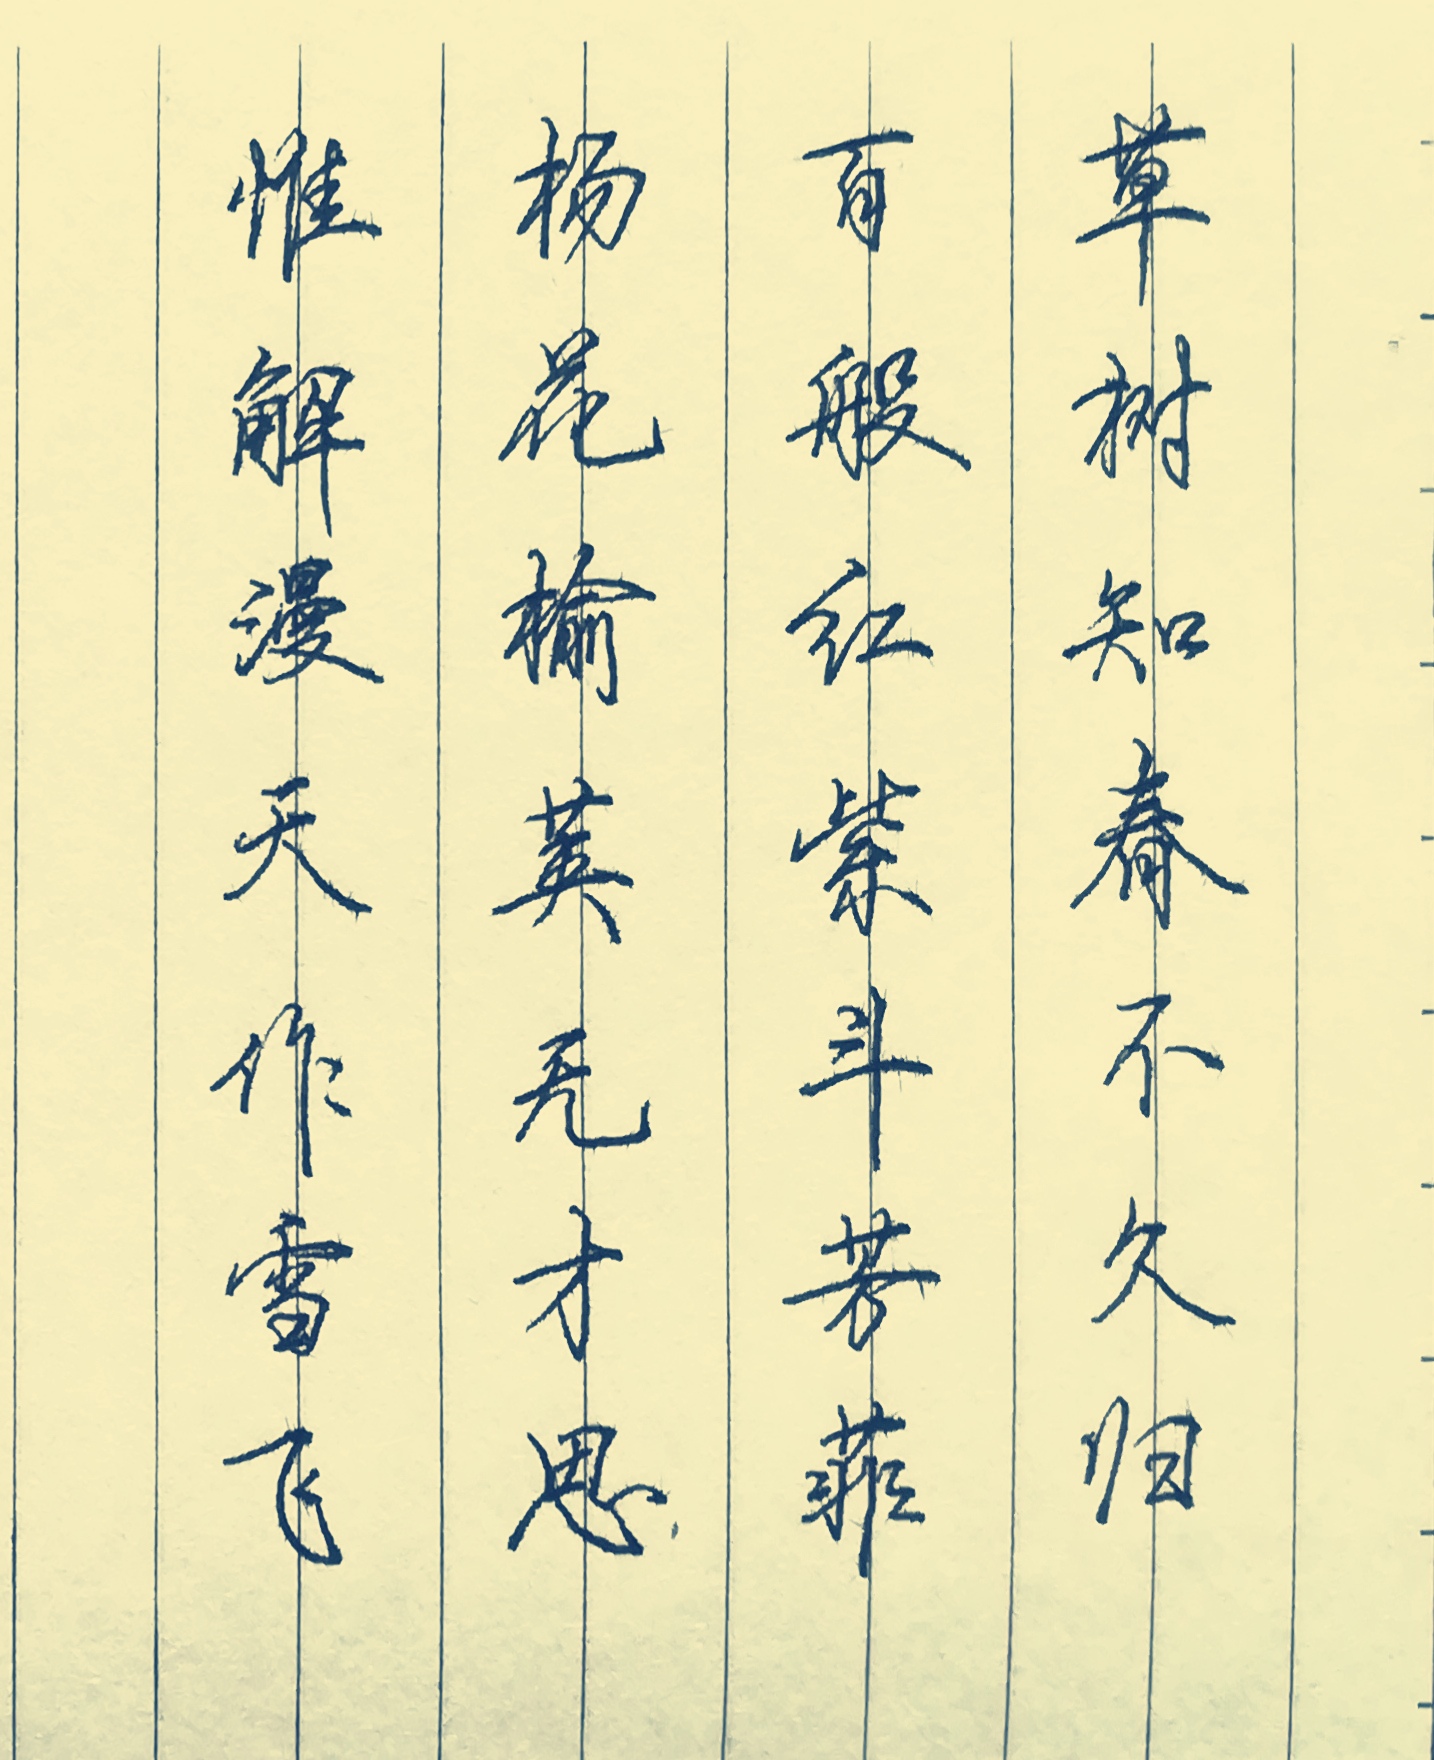 草树知春不久归
百般红紫斗芳菲
杨花榆荚无才思
惟解漫天作雪飞